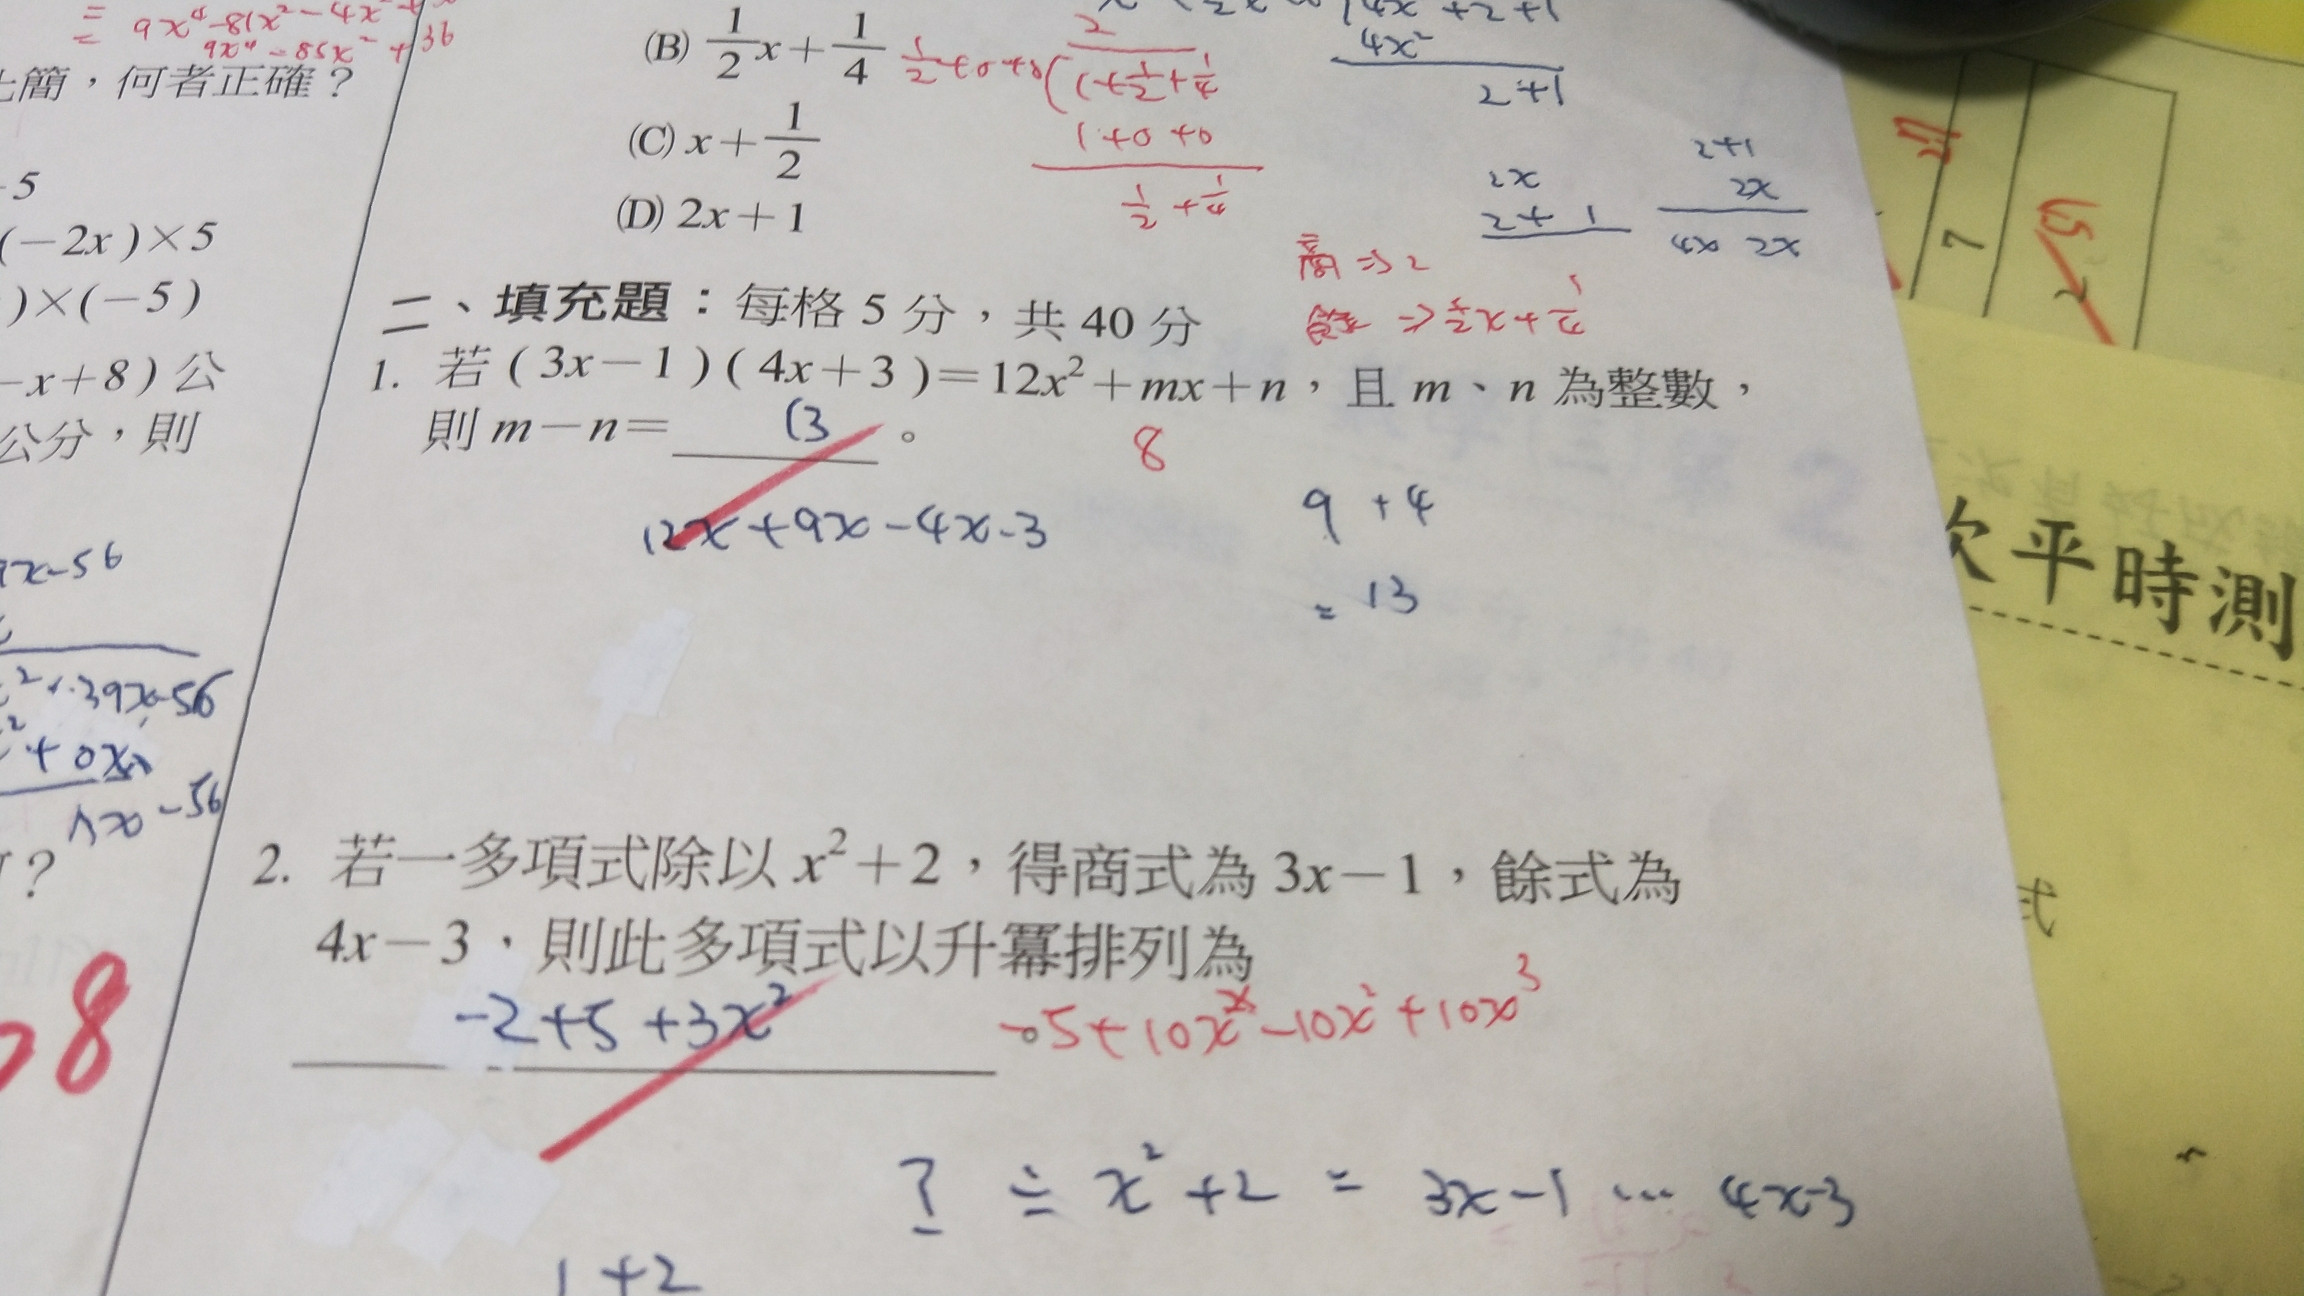 = 9x⁴-81x²-4x²+
= 9x⁴-85x²+36
簡，何者正確？
-5
(-2x)×5
)×(-5)
-x+8)公
公分，則
x-56
²+39x-56
²+0x
x-56
？
8
(B) 1/2 x+1/4
(C) x+1/2
(D) 2x+1
2
1/2+0+0(1+1/2+1/4
1+0+0
1/2+1/4
4x²+2+1
4x²
2+1
2x
2+1
2+1
2x
4x 2x
商⇒2
餘⇒1/2x+1/4
二、填充題：每格5分，共40分
1. 若(3x-1)(4x+3)=12x²+mx+n，且m、n為整數，
則m-n= 13 。
8
12x+9x-4x-3
9+4
=13
2. 若一多項式除以x²+2，得商式為3x-1，餘式為
4x-3，則此多項式以升冪排列為
-2+5+3x² 。
-5+10x-10x²+10x³
? ÷ x²+2 = 3x-1 … 4x-3
1+2
7
次平時測
式